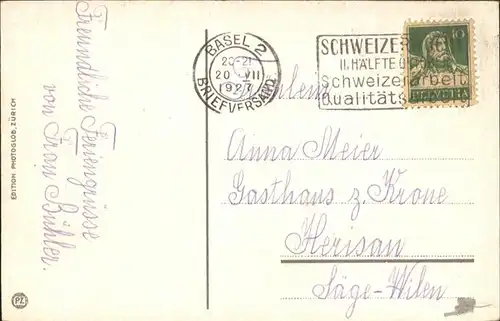 Freundliche Feriengrüsse
von Frau Bühler.
EDITION PHOTOGLOB, ZÜRICH
PZ
BASEL 2
20 VII
1927
BRIEFVERSAND
SCHWEIZER
II. HÄLFTE
Schweizerarbeit
Qualitäts
10
HELVETIA
Anna Meier
Gasthaus z. Krone
Herisau
Säge-Wilen